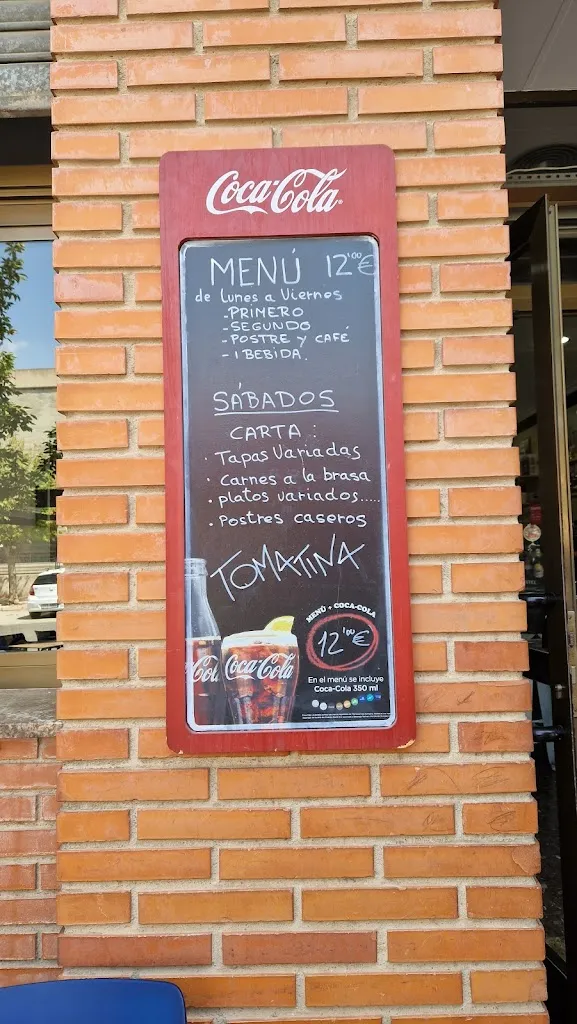 Coca-Cola
MENÚ 12'00€
de Lunes a Viernes
- PRIMERO
- SEGUNDO
- POSTRE Y CAFÉ
- 1 BEBIDA.
SÁBADOS
CARTA :
· Tapas Variadas
· Carnes a la brasa
· platos variados.....
· Postres caseros
TOMATINA
MENÚ + COCA-COLA
12'00 €
En el menú se incluye
Coca-Cola 350 ml
Coca-Cola